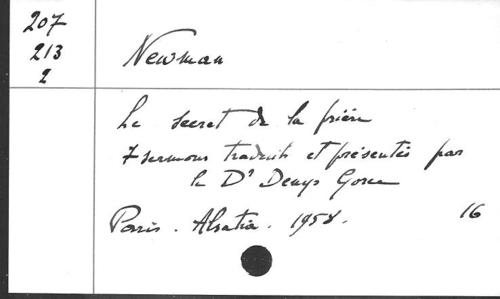 207
213
2
Newman
Le secret de la prière
7 sermons traduits et présentés par
le Dr Denys Gorce
Paris. Alsatia. 1958.
16